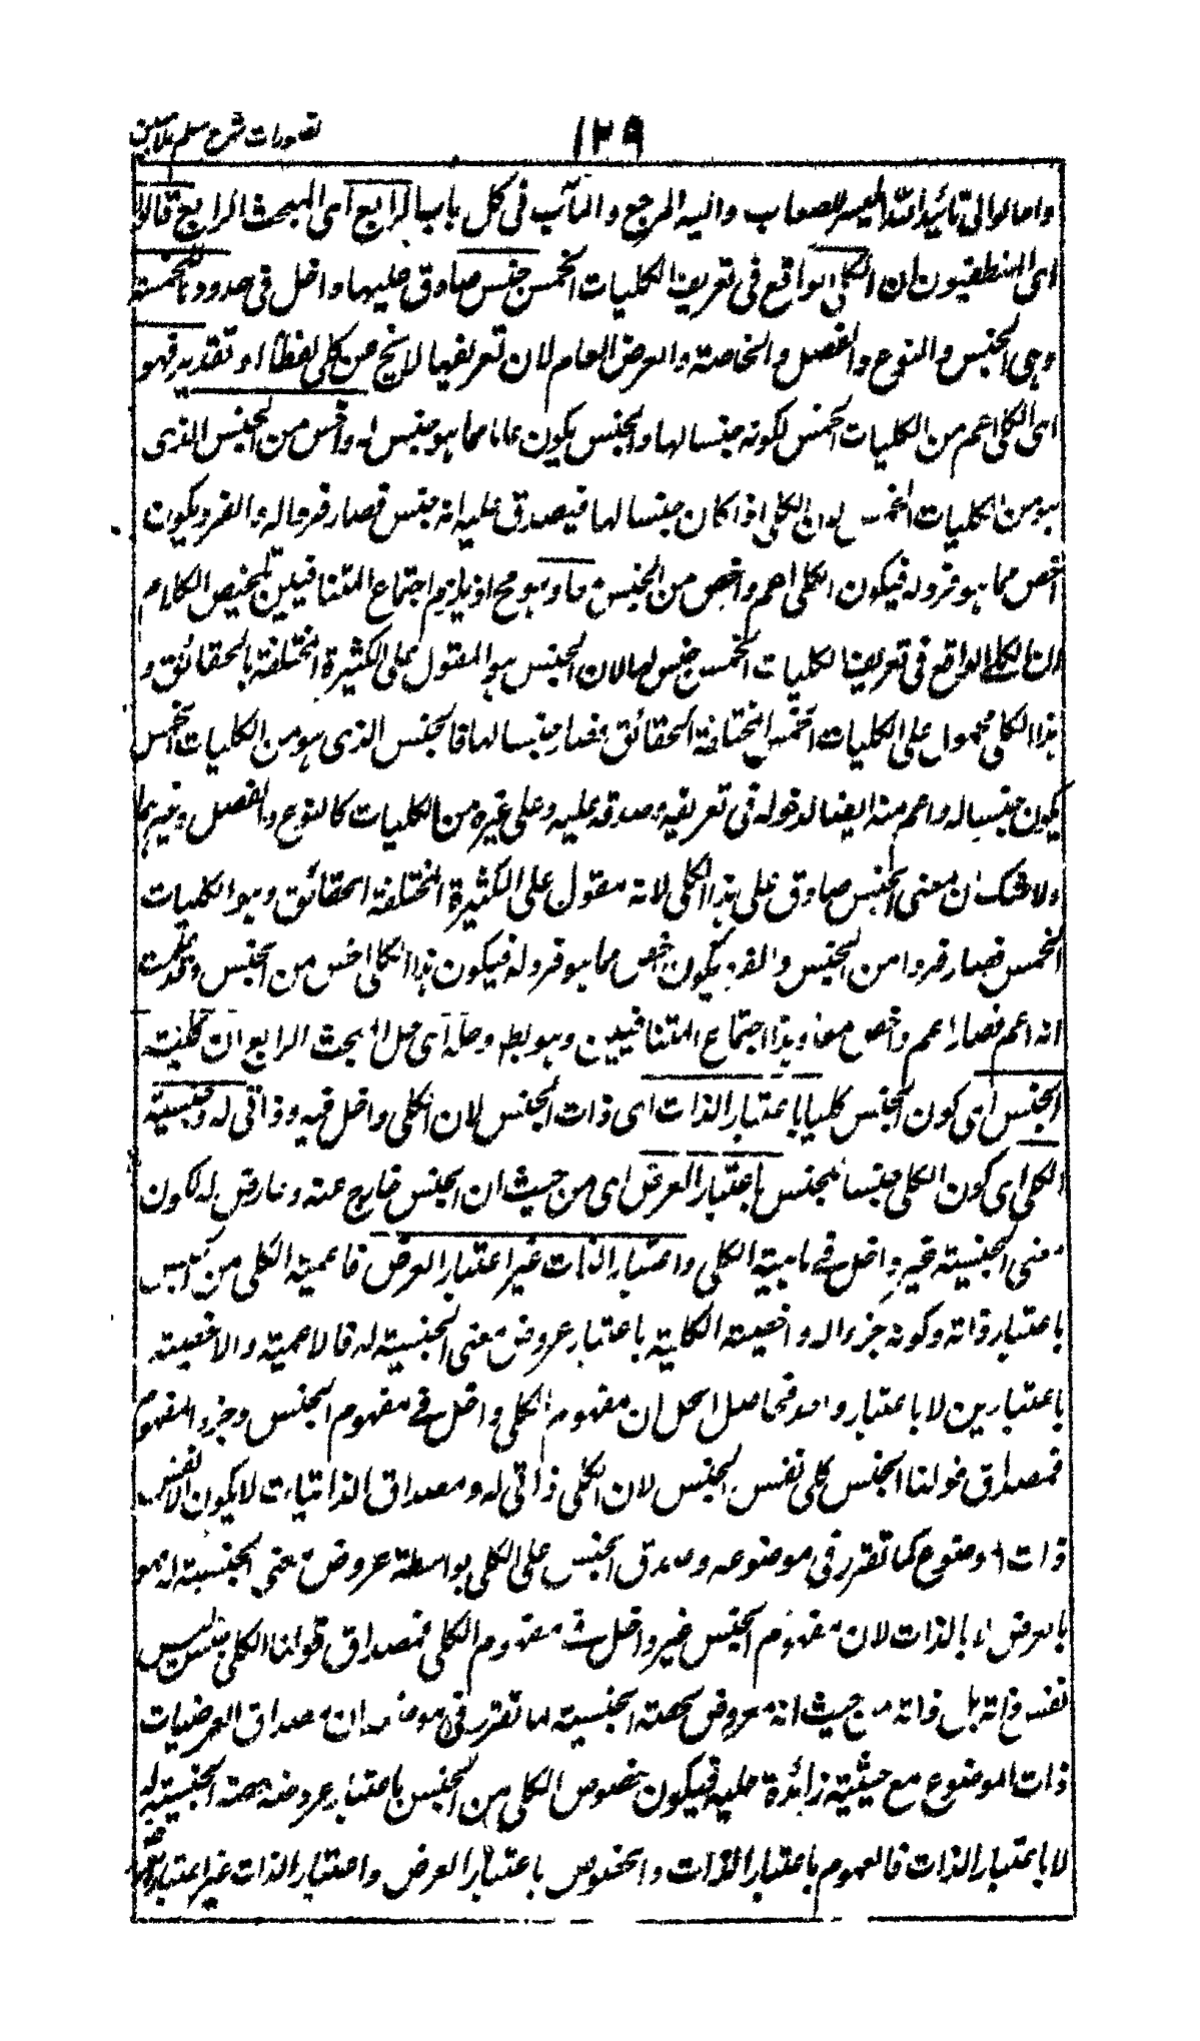 تصورات شرح سلم ملا مبین
۱۲۹
وامالوالی تائید اللہ المیسر للصعاب والیہ المرجع والمآب فی کل باب الرابع ای المبحث الرابع قالوا
ای المنطقیون ان الکلی الواقع فی تعریف الکلیات الخمس جنس صادق علیہا داخل فی حدود الخمسۃ
وہی الجنس والنوع والفصل والخاصۃ والعرض العام لان تعریفہا لا یخ من کلی لفظاً او تقدیر فہو
ای الکلی اعم من الکلیات الخمس لکونہ جنسا لہا والجنس یکون عاما مما ہو جنس لہ واخص من الجنس الذی
ہو من الکلیات الخمس لان الکلی اذا کان جنسا لہا فیصدق علیہ انہ جنس فصار فردا لہ والفرد یکون
اخص مما ہو فرد لہ فیکون الکلی اعم واخص من الجنس معا وہو مح اذ یلزم اجتماع المتنافیین تلخیص الکلام
ان الکلی الواقع فی تعریف الکلیات الخمس جنس لہا لان الجنس ہو المقول علی الکثیرۃ المختلفۃ بالحقائق و
ہذا الکلی محمول علی الکلیات الخمس المختلفۃ الحقائق فصار جنسا لہا فالجنس الذی ہو من الکلیات الخمس
یکون جنسا لہ واعم منہ ایضا لدخولہ فی تعریفہ وصدقہ علیہ وعلی غیرہ من الکلیات کالنوع والفصل وغیرہما
ولا شک ان معنی الجنس صادق علی ہذا الکلی لانہ مقول علی الکثیرۃ المختلفۃ الحقائق وہو الکلیات
الخمس فصار فردا من الجنس والفرد یکون اخص مما ہو فرد لہ فیکون ہذا الکلی اخص من الجنس وقد علمت
انہ اعم فصار اعم واخص معا وہذا اجتماع المتنافیین وہو بط وحلہ ای حل المبحث الرابع ان کلیۃ
الجنس ای کون الجنس کلیا باعتبار الذات ای ذات الجنس لان الکلی داخل فیہ وذاتی لہ وجنسیۃ
الکلی ای کون الکلی جنسا للجنس باعتبار العرض ای من حیث ان الجنس خارج عنہ وعارض لہ لکون
معنی الجنسیۃ غیر داخل فے ماہیۃ الکلی واعتبار الذات غیر اعتبار العرض فاعمیۃ الکلی من الجنس
باعتبار ذاتہ وکونہ جزءا لہ واخصیۃ الکلیۃ باعتبار عروض معنی الجنسیۃ لہ فالاعمیۃ والاخصیۃ
باعتبارین لا باعتبار واحد فحاصل الحل ان مفہوم الکلی داخل فے مفہوم الجنس وجزء المفہوم
فمصداق قولنا الجنس کلی نفس الجنس لان الکلی ذاتی لہ ومصداق الذاتیات لا یکون الا نفس
ذات الموضوع کما تقرر فی موضعہ وصدق الجنس علی الکلی بواسطۃ عروض معنی الجنسیۃ لہ فہو
بالعرض لا بالذات لان مفہوم الجنس غیر داخل فے مفہوم الکلی فمصداق قولنا الکلی جنس لیس
نفس ذاتہ بل ذاتہ من حیث انہ معروض لحصۃ الجنسیۃ لما تقرر فی موضعہ ان مصداق العرضیات
ذات الموضوع مع حیثیۃ زائدۃ علیہ فیکون خصوص الکلی من الجنس باعتبار عروضہ حصۃ الجنسیۃ لہ
لا باعتبار الذات فالعموم باعتبار الذات والخصوص باعتبار العرض واعتبار الذات غیر اعتبار